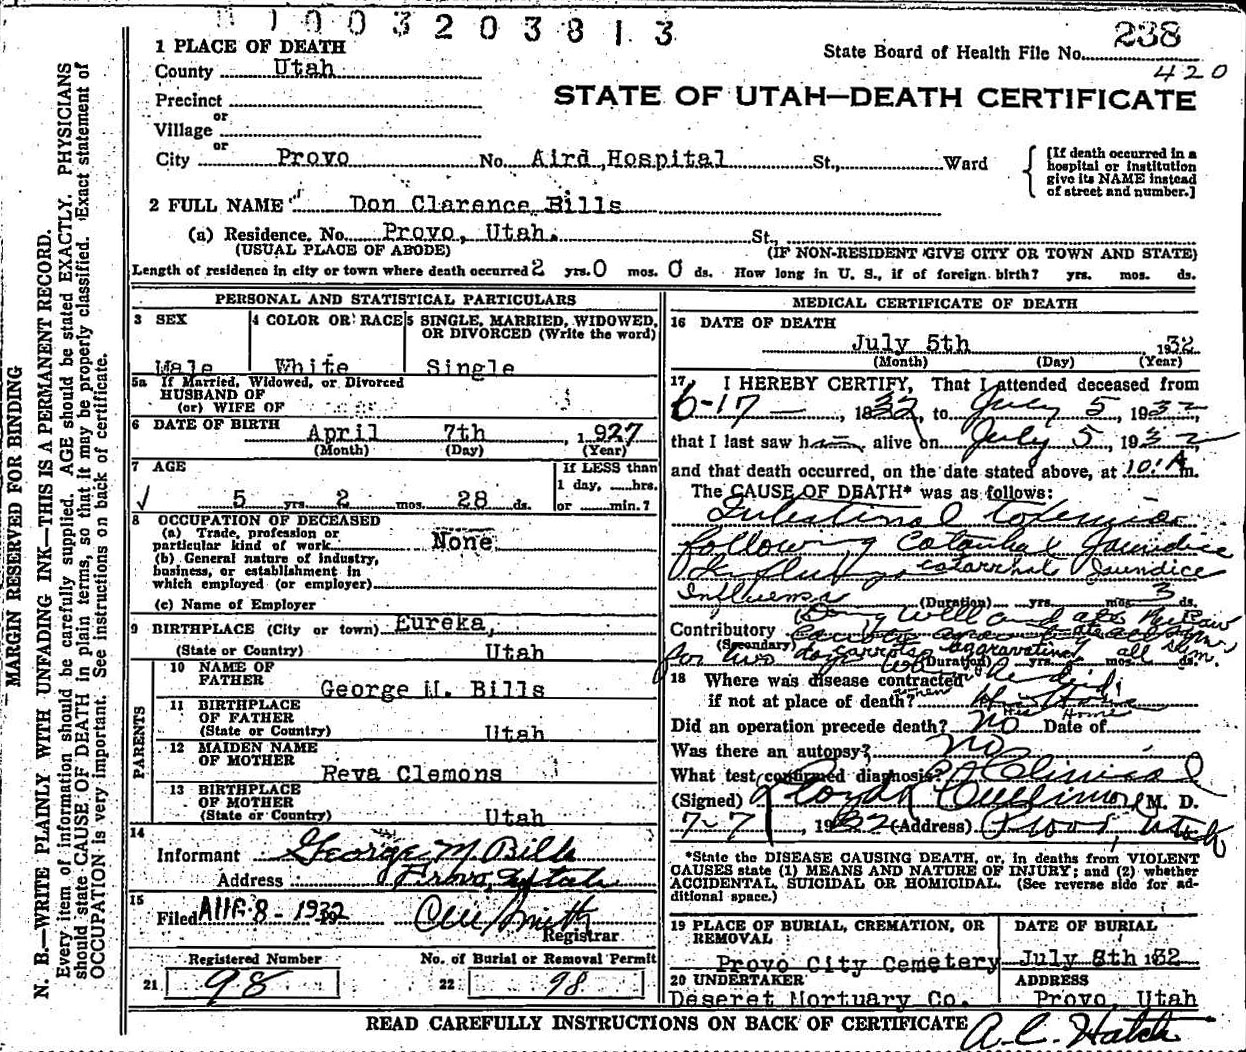 1003203813
238
State Board of Health File No.
420
1 PLACE OF DEATH
County Utah
STATE OF UTAH—DEATH CERTIFICATE
Precinct
or
Village
or
City Provo No. Aird Hospital St., Ward
[If death occurred in a hospital or institution give its NAME instead of street and number.]
2 FULL NAME Don Clarence Bills
(a) Residence. No. Provo, Utah. St.,
(USUAL PLACE OF ABODE) (IF NON-RESIDENT GIVE CITY OR TOWN AND STATE)
Length of residence in city or town where death occurred 2 yrs. 0 mos. 0 ds. How long in U. S., if of foreign birth? yrs. mos. ds.
PERSONAL AND STATISTICAL PARTICULARS
3 SEX
Male
4 COLOR OR RACE
White
5 SINGLE, MARRIED, WIDOWED, OR DIVORCED (Write the word)
Single
5a If Married, Widowed, or Divorced
HUSBAND OF
(or) WIFE OF
6 DATE OF BIRTH April 7th, 1927
(Month) (Day) (Year)
7 AGE
5 yrs. 2 mos. 28 ds.
If LESS than
1 day, ___hrs.
or ___min.?
8 OCCUPATION OF DECEASED
(a) Trade, profession or
particular kind of work None
(b) General nature of industry,
business, or establishment in
which employed (or employer)
(c) Name of Employer
9 BIRTHPLACE (City or town) Eureka,
(State or Country) Utah
PARENTS
10 NAME OF
FATHER
George M. Bills
11 BIRTHPLACE
OF FATHER
(State or Country) Utah
12 MAIDEN NAME
OF MOTHER
Reva Clemons
13 BIRTHPLACE
OF MOTHER
(State or Country) Utah
14
Informant George M. Bills
Address Provo, Utah
15
Filed AUG 8 - 1932
Registrar
Registered Number
21 98
No. of Burial or Removal Permit
22 98
MEDICAL CERTIFICATE OF DEATH
16 DATE OF DEATH
July 5th 1932
(Month) (Day) (Year)
17 I HEREBY CERTIFY, That I attended deceased from
6-17-, 1932, to July 5, 1932,
that I last saw him alive on July 5, 1932
and that death occurred, on the date stated above, at 10:A m.
The CAUSE OF DEATH* was as follows:
Intestinal toxemia
following Catarrhal Jaundice
catarrhal Jaundice
Influenza
(Duration) yrs. mos. 3 ds.
Contributory
(Secondary) carrots aggravating all
for two days
(Duration) yrs. mos. ds.
18 Where was disease contracted
if not at place of death? His Home
His Home
Did an operation precede death? No Date of
Was there an autopsy? No
What test confirmed diagnosis? Clinical
(Signed) Lloyd L Cullimore M. D.
7-7, 1932 (Address) Provo, Utah
*State the DISEASE CAUSING DEATH, or, in deaths from VIOLENT
CAUSES state (1) MEANS AND NATURE OF INJURY; and (2) whether
ACCIDENTAL, SUICIDAL OR HOMICIDAL. (See reverse side for ad-
ditional space.)
19 PLACE OF BURIAL, CREMATION, OR
REMOVAL
Provo City Cemetery
DATE OF BURIAL
July 8th 1932
20 UNDERTAKER
Deseret Mortuary Co.
ADDRESS
Provo, Utah
READ CAREFULLY INSTRUCTIONS ON BACK OF CERTIFICATE
A. C. Hatch
MARGIN RESERVED FOR BINDING
N. B.—WRITE PLAINLY WITH UNFADING INK—THIS IS A PERMANENT RECORD.
Every item of information should be carefully supplied. AGE should be stated EXACTLY. PHYSICIANS
should state CAUSE OF DEATH in plain terms, so that it may be properly classified. Exact statement of
OCCUPATION is very important. See instructions on back of certificate.